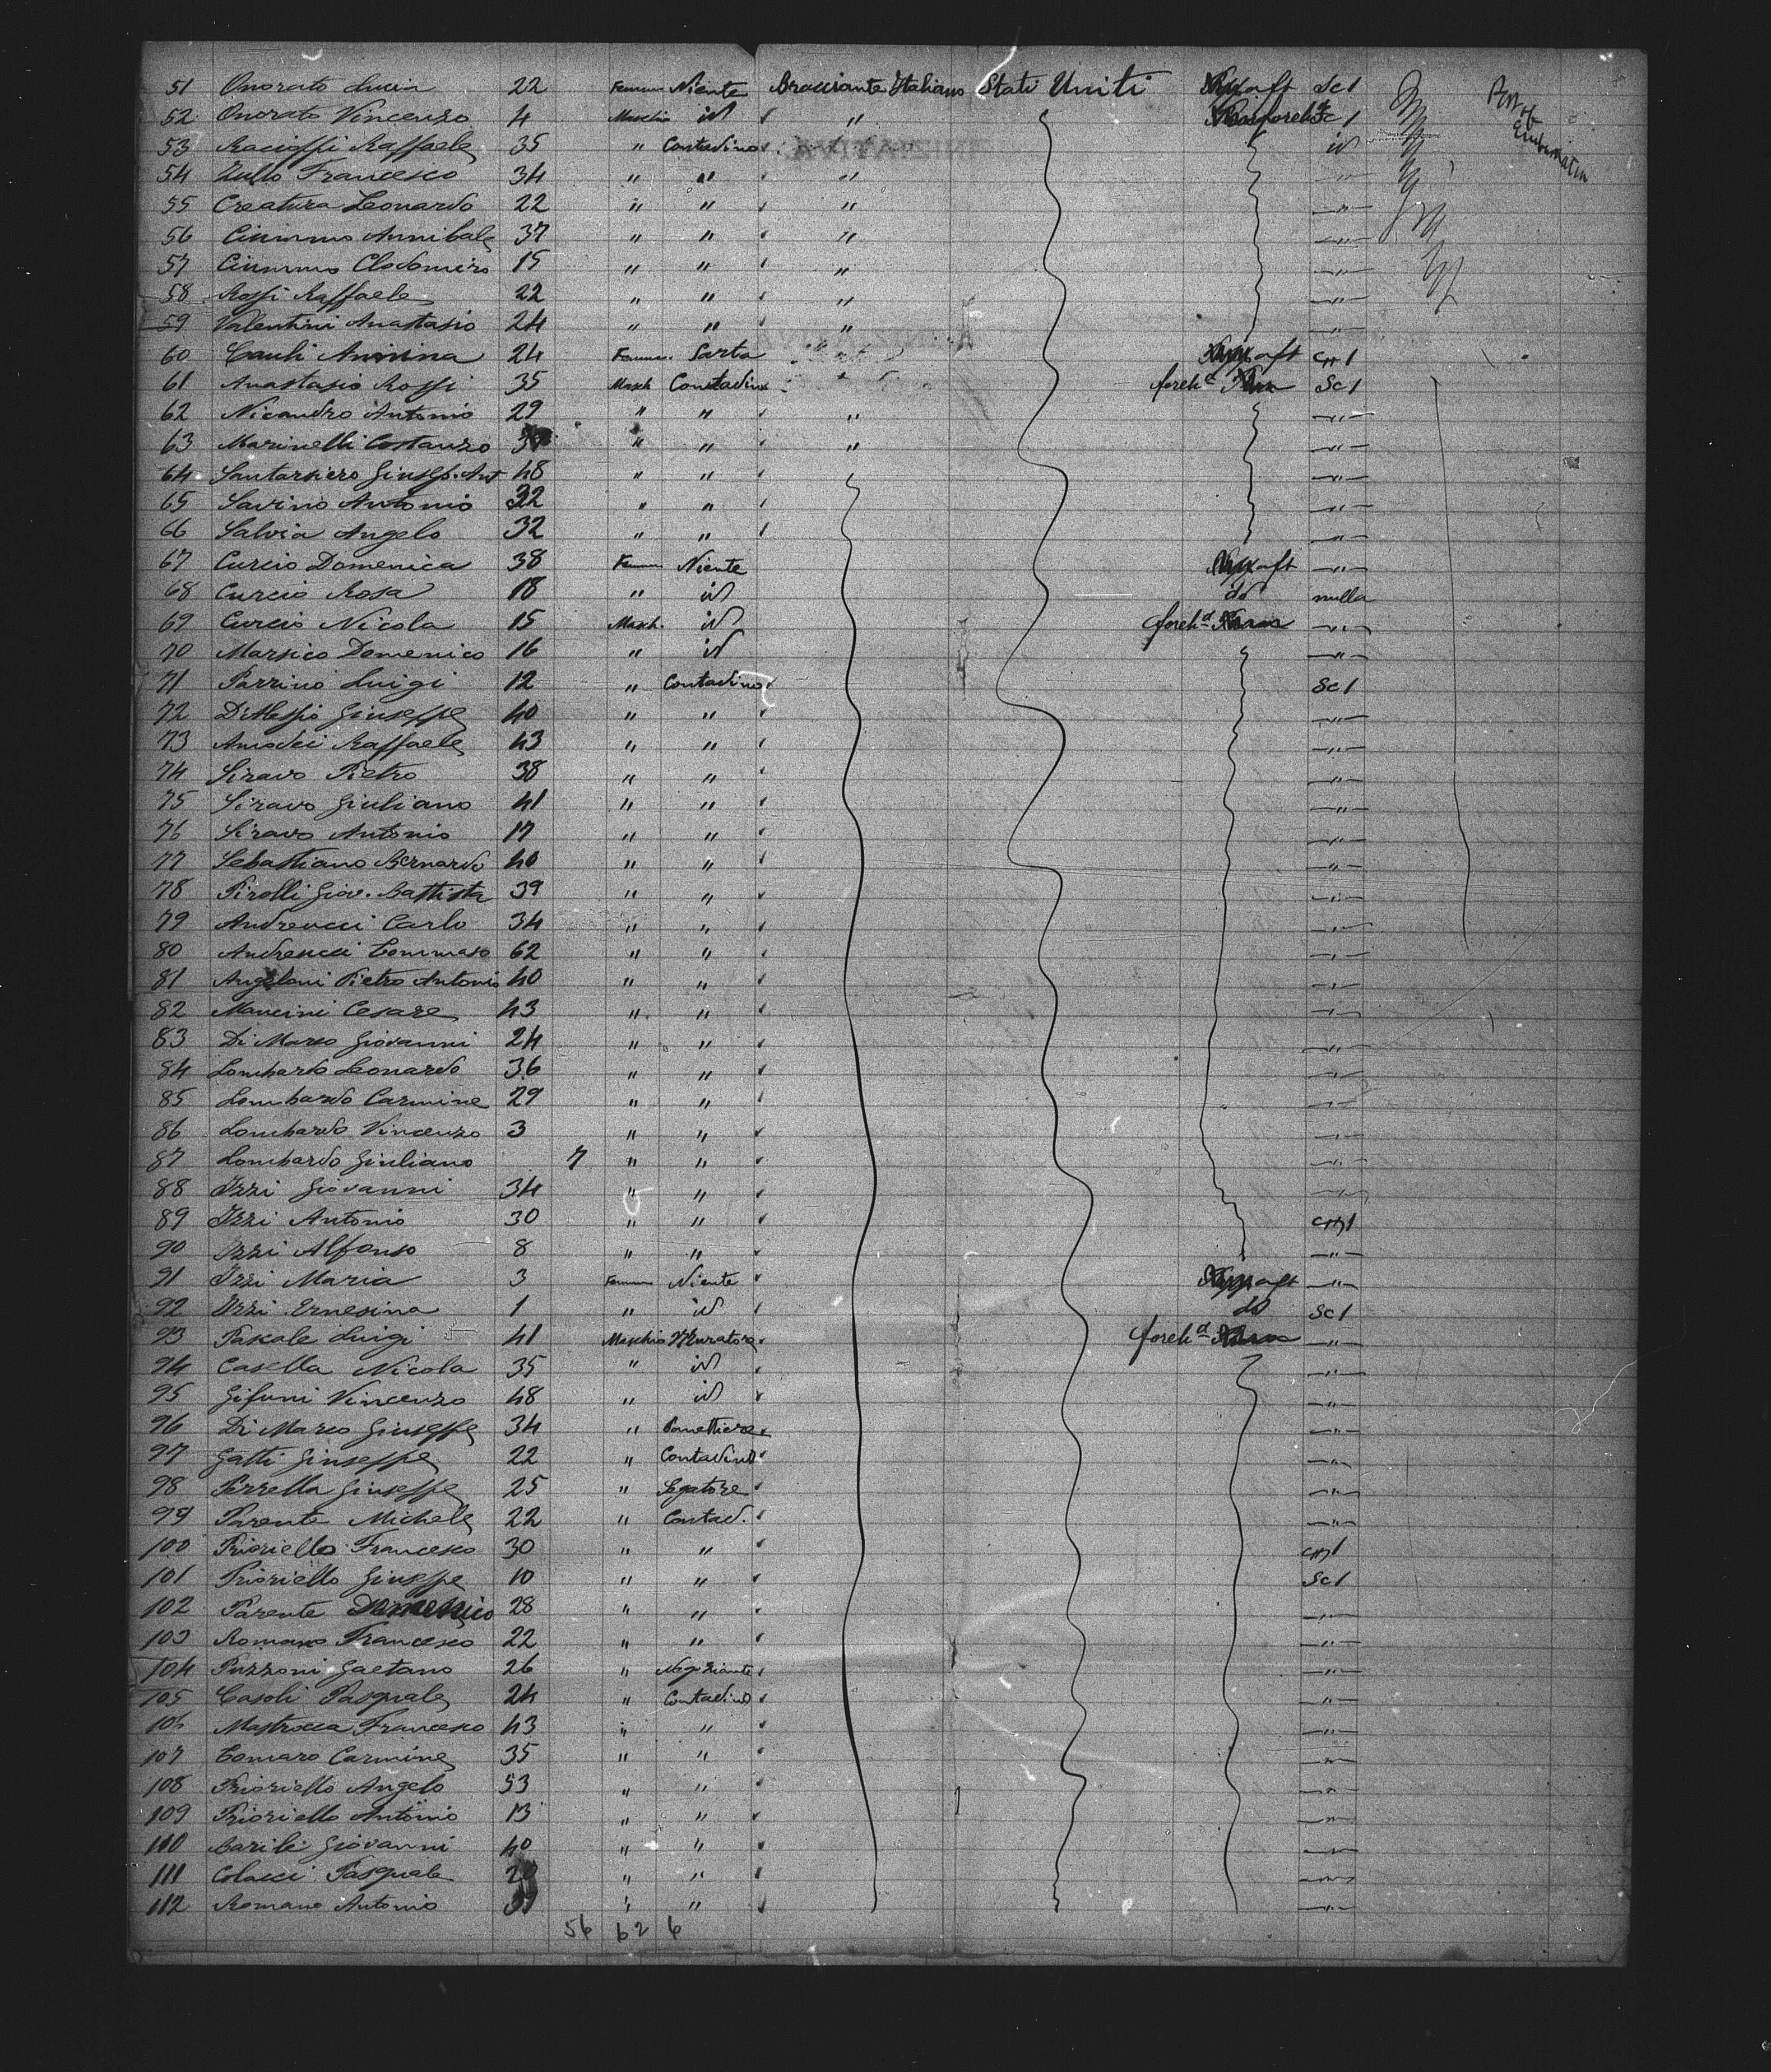 51 Onorato Lucia 22 Femm Niente Bracciante Italiano Stati Uniti aft Sc 1
52 Onorato Vincenzo 4 Maschio id " foreh Sc 1
53 Racioppi Raffaele 35 " Contadino id
54 Zullo Francesco 34 " " " "
55 Creatura Leonardo 22 " " " "
56 Cimmino Annibale 37 " " " "
57 Cimmino Clodomiro 15 " " " "
58 Rossi Raffaele 22 " " " "
59 Valentini Anastasio 24 " " " "
60 Annina 24 Femm. Sarta aft 1
61 Anastasio Rossi 35 Masch Contadino foreh Sc 1
62 Nicandro Antonio 29 " " " "
63 Marinelli Costanzo " " " "
64 Santarsiero Giusep. Ant 48 " " "
65 Savino Antonio 32 " " "
66 Salvia Angelo 32 " " "
67 Curcio Domenica 38 Femm Niente aft "
68 Curcio Rosa 18 " id do nulla
69 Curcio Nicola 15 Masch. id foreh "
70 Marsico Domenico 16 " id "
71 Parrino Luigi 12 " Contadino Sc 1
72 Di Alessio Giuseppe 40 " " "
73 Amodei Raffaele 43 " " "
74 Siravo Pietro 38 " " "
75 Siravo Giuliano 41 " " "
76 Siravo Antonio 17 " " "
77 Sebastiano Bernardo 40 " " "
78 Pirolli Giov. Battista 39 " " "
79 Andreucci Carlo 34 " " "
80 Andreucci Tommaso 62 " " "
81 Angeloni Pietro Antonio 40 " " "
82 Mancini Cesare 43 " " "
83 Di Marco Giovanni 24 " " "
84 Lombardo Leonardo 36 " " "
85 Lombardo Carmine 29 " " "
86 Lombardo Vincenzo 3 " " "
87 Lombardo Giuliano 7 " " "
88 Izzi Giovanni 34 " " "
89 Izzi Antonio 30 " " 1
90 Izzi Alfonso 8 " " "
91 Izzi Maria 3 Femm Niente aft "
92 Izzi Ernesina 1 " id do Sc 1
93 Pascale Luigi 41 Maschio Muratore foreh "
94 Casella Nicola 35 " id "
95 Gifuni Vincenzo 48 " id "
96 Di Marco Giuseppe 34 " Panettiere "
97 Gatti Giuseppe 22 " Contadino "
98 Pizzella Giuseppe 25 " Segatore "
99 Parente Michele 22 " Contad. "
100 Prioriello Francesco 30 " " 1
101 Prioriello Giuseppe 10 " " Sc 1
102 Parente Domenico 28 " " "
103 Romano Francesco 22 " " "
104 Puzzoni Gaetano 26 " Negoziante "
105 Casoli Pasquale 24 " Contadino "
106 Mastrocca Francesco 43 " " "
107 Tomaro Carmine 35 " " "
108 Prioriello Angelo 53 " " "
109 Prioriello Antonio 13 " " "
110 Barile Giovanni 40 " " "
111 Colacci Pasquale " " "
112 Romano Antonio " " "
56 62 6